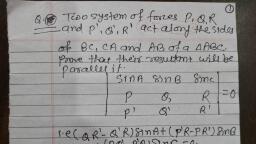 ①
Q. Two system of forces P, Q, R
and P', Q', R' act along the sides
of BC, CA and AB of a ΔABC.
Prove that their resultant will be
parallel if.
| sinA sinB sinC |
| P Q R | = 0
| P' Q' R' |
i.e (QR' - Q'R) sinA + (P'R - PR') sinB